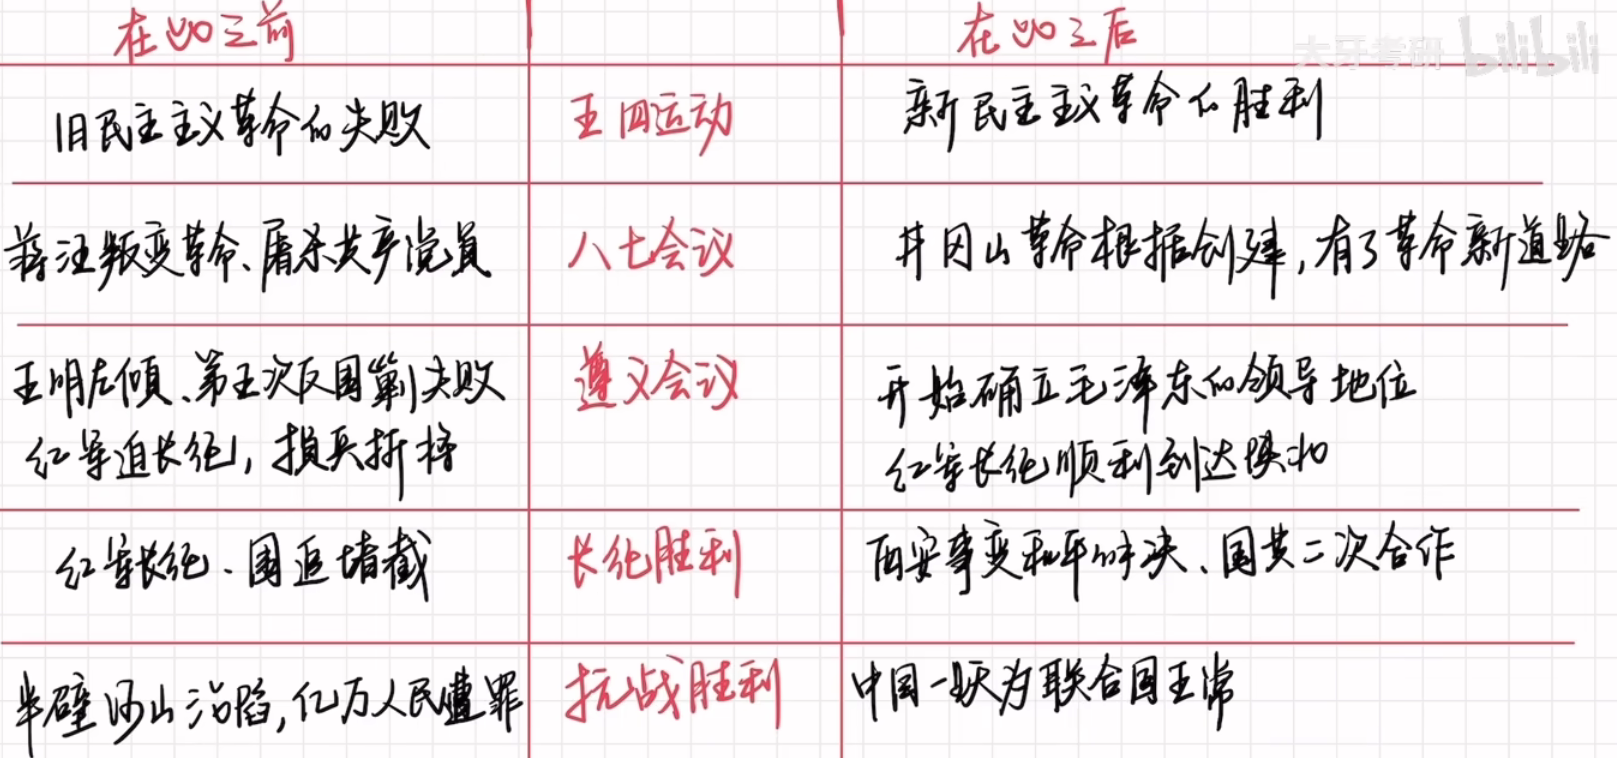 在此之前
在此之后
大牙考研 bilibili
旧民主主义革命的失败
五四运动
新民主主义革命的胜利
蒋汪叛变革命、屠杀共产党员
八七会议
井冈山革命根据创建，有了革命新道路
王明左倾、第五次反围剿失败
红军迫长征，损兵折将
遵义会议
开始确立毛泽东的领导地位
红军长征顺利到达陕北
红军长征、围追堵截
长征胜利
西安事变和平解决、国共二次合作
半壁河山沦陷，亿万人民遭罪
抗战胜利
中国一跃为联合国五常